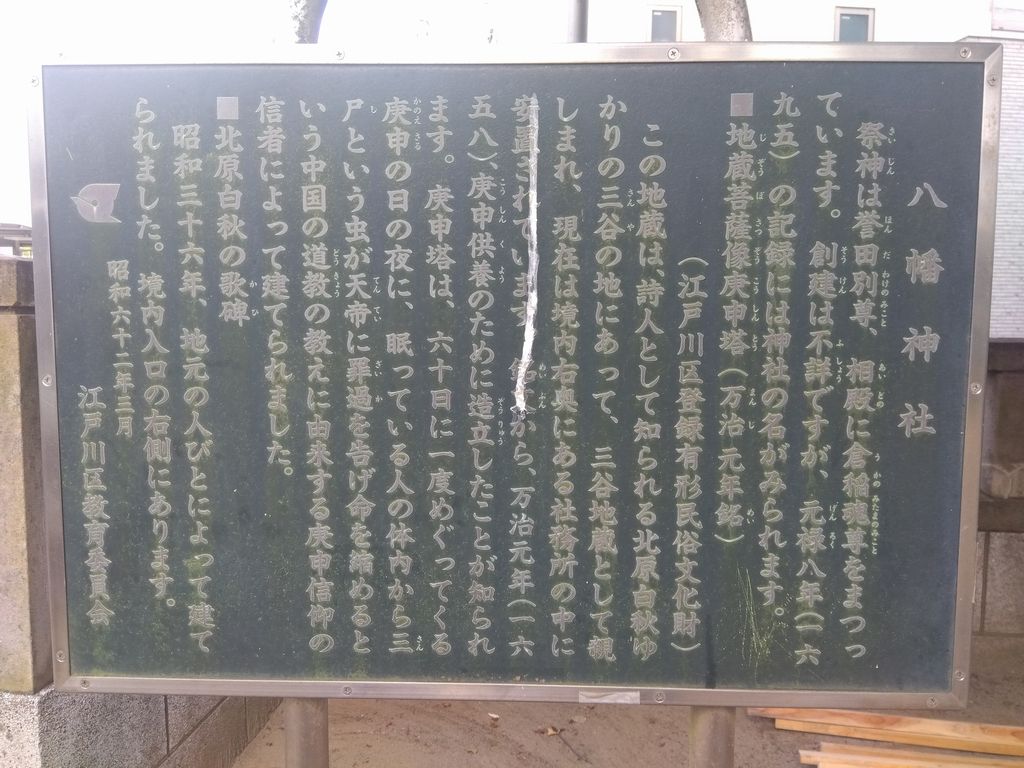 八幡神社
祭神は誉田別尊、相殿に倉稲魂尊をまつっ
ています。創建は不詳ですが、元禄八年(一六
九五)の記録には神社の名がみられます。
■地蔵菩薩像庚申塔(万治元年銘)
(江戸川区登録有形民俗文化財)
この地蔵は、詩人として知られる北原白秋ゆ
かりの三谷の地にあって、三谷地蔵として親
しまれ、現在は境内右奥にある社務所の中に
安置されています。 から、万治元年(一六
五八)、庚申供養のために造立したことが知られ
ます。庚申塔は、六十日に一度めぐってくる
庚申の日の夜に、眠っている人の体内から三
尸という虫が天帝に罪過を告げ命を縮めると
いう中国の道教の教えに由来する庚申信仰の
信者によって建てられました。
■北原白秋の歌碑
昭和三十六年、地元の人びとによって建て
られました。境内入口の右側にあります。
昭和六十二年三月
江戸川区教育委員会